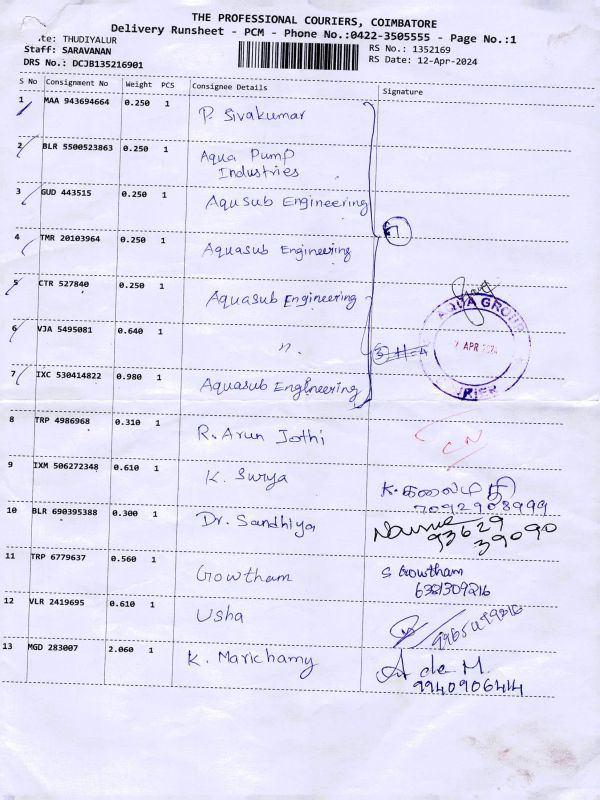 THE PROFESSIONAL COURIERS, COIMBATORE
Delivery Runsheet - PCM - Phone No.:0422-3505555 - Page No.:1
te: THUDIYALUR
Staff: SARAVANAN
DRS No.: DCJB135216901
RS No.: 1352169
RS Date: 12-Apr-2024
S No Consignment No Weight PCS Consignee Details Signature
1 MAA 943694664 0.250 1 P. Sivakumar
2 BLR 5500523863 0.250 1 Aqua Pump
Industries
3 GUD 443515 0.250 1 Aquasub Engineering
7
4 TMR 20103964 0.250 1 Aquasub Engineering
5 CTR 527840 0.250 1 Aquasub Engineering
AQUA GROUP
APR 2024
6 VJA 5495081 0.640 1 "
7 IXC 530414822 0.980 1 Aquasub Engineering
8 TRP 4986968 0.310 1 R. Arun Jothi
CN
9 IXM 506272348 0.610 1 K. Surya K. கலைமதி
7092908999
10 BLR 690395388 0.300 1 Dr. Sandhiya
93629
39090
11 TRP 6779637 0.560 1 Gowtham S Gowtham
12 VLR 2419695 0.610 1 Usha
13 MGD 283007 2.060 1 K. Marichamy
9940906414